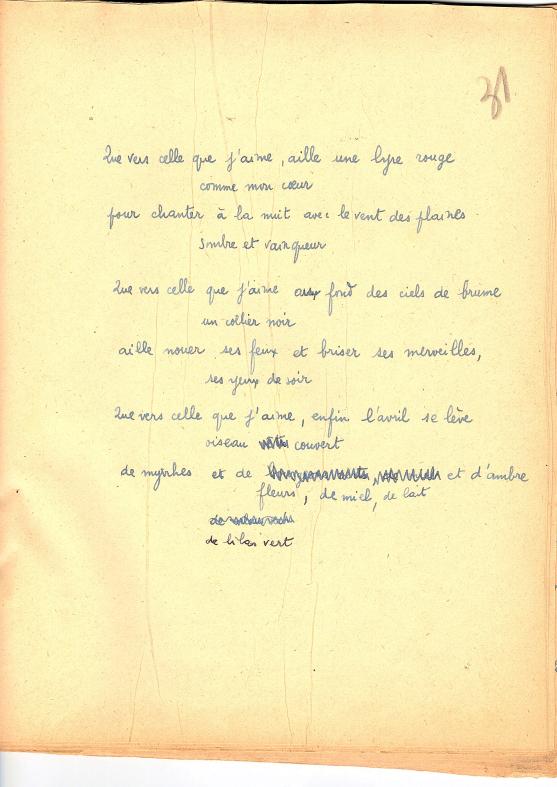 31
Que vers celle que j'aime, aille une lyre rouge
comme mon cœur
pour chanter à la nuit avec le vent des plaines
sombre et vainqueur
Que vers celle que j'aime au fond des ciels de brume
un collier noir
aille nouer ses feux et briser ses merveilles,
ses yeux de soir
Que vers celle que j'aime, enfin l'avril se lève
oiseau couvert
de myrrhes et de et d'ambre
fleurs, de miel, de lait
de lilas vert